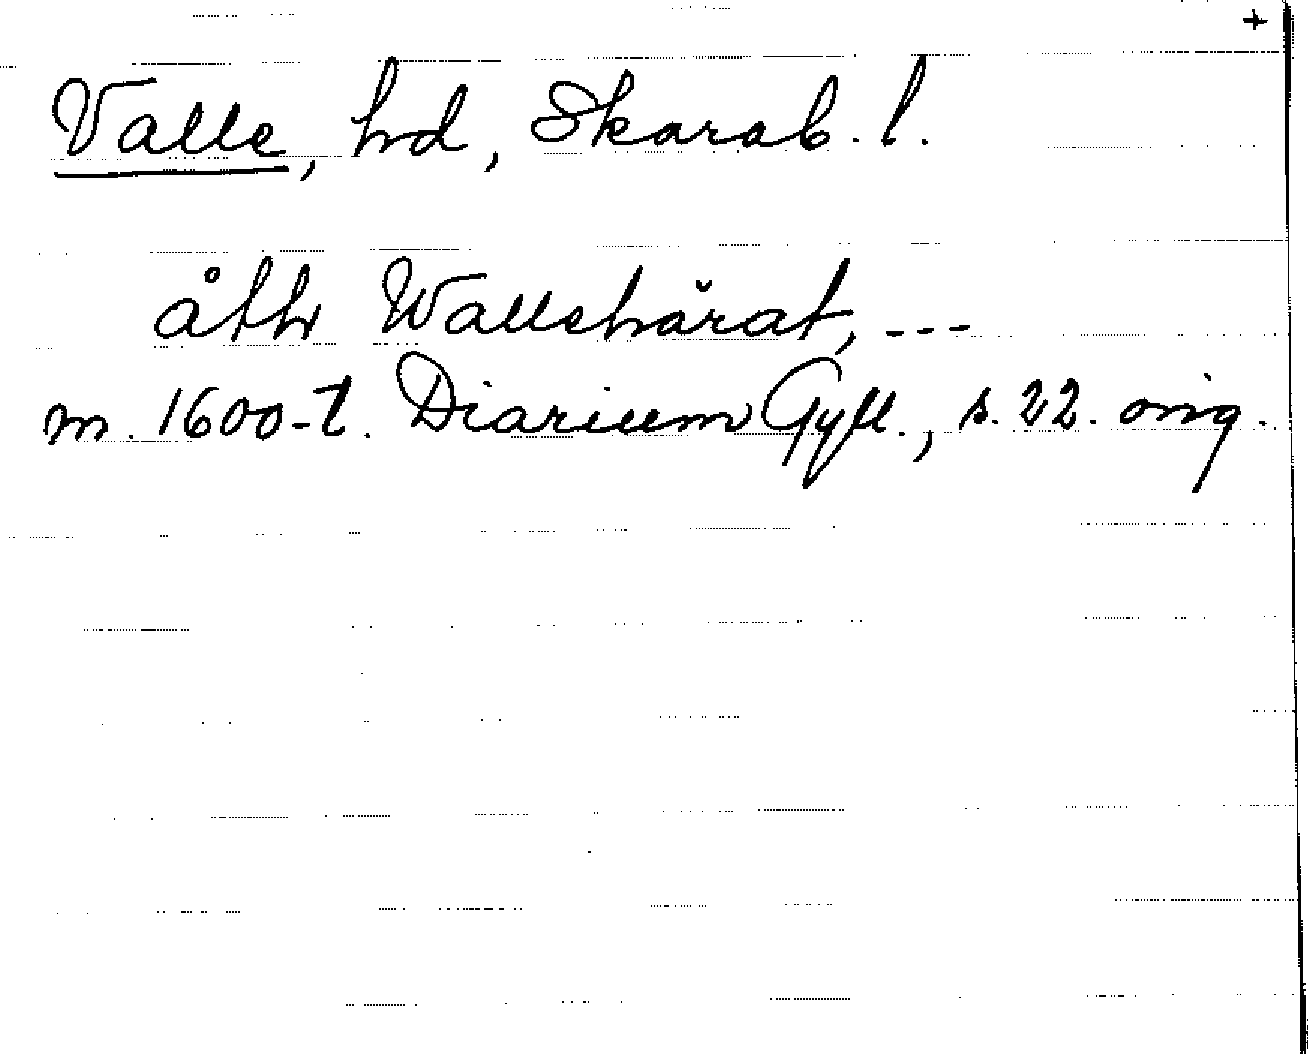 +
Valle, hd, Skarab. l.
åthr Wallehärat, ---
m. 1600-t. Diarium Gyll., s. 22. orig.